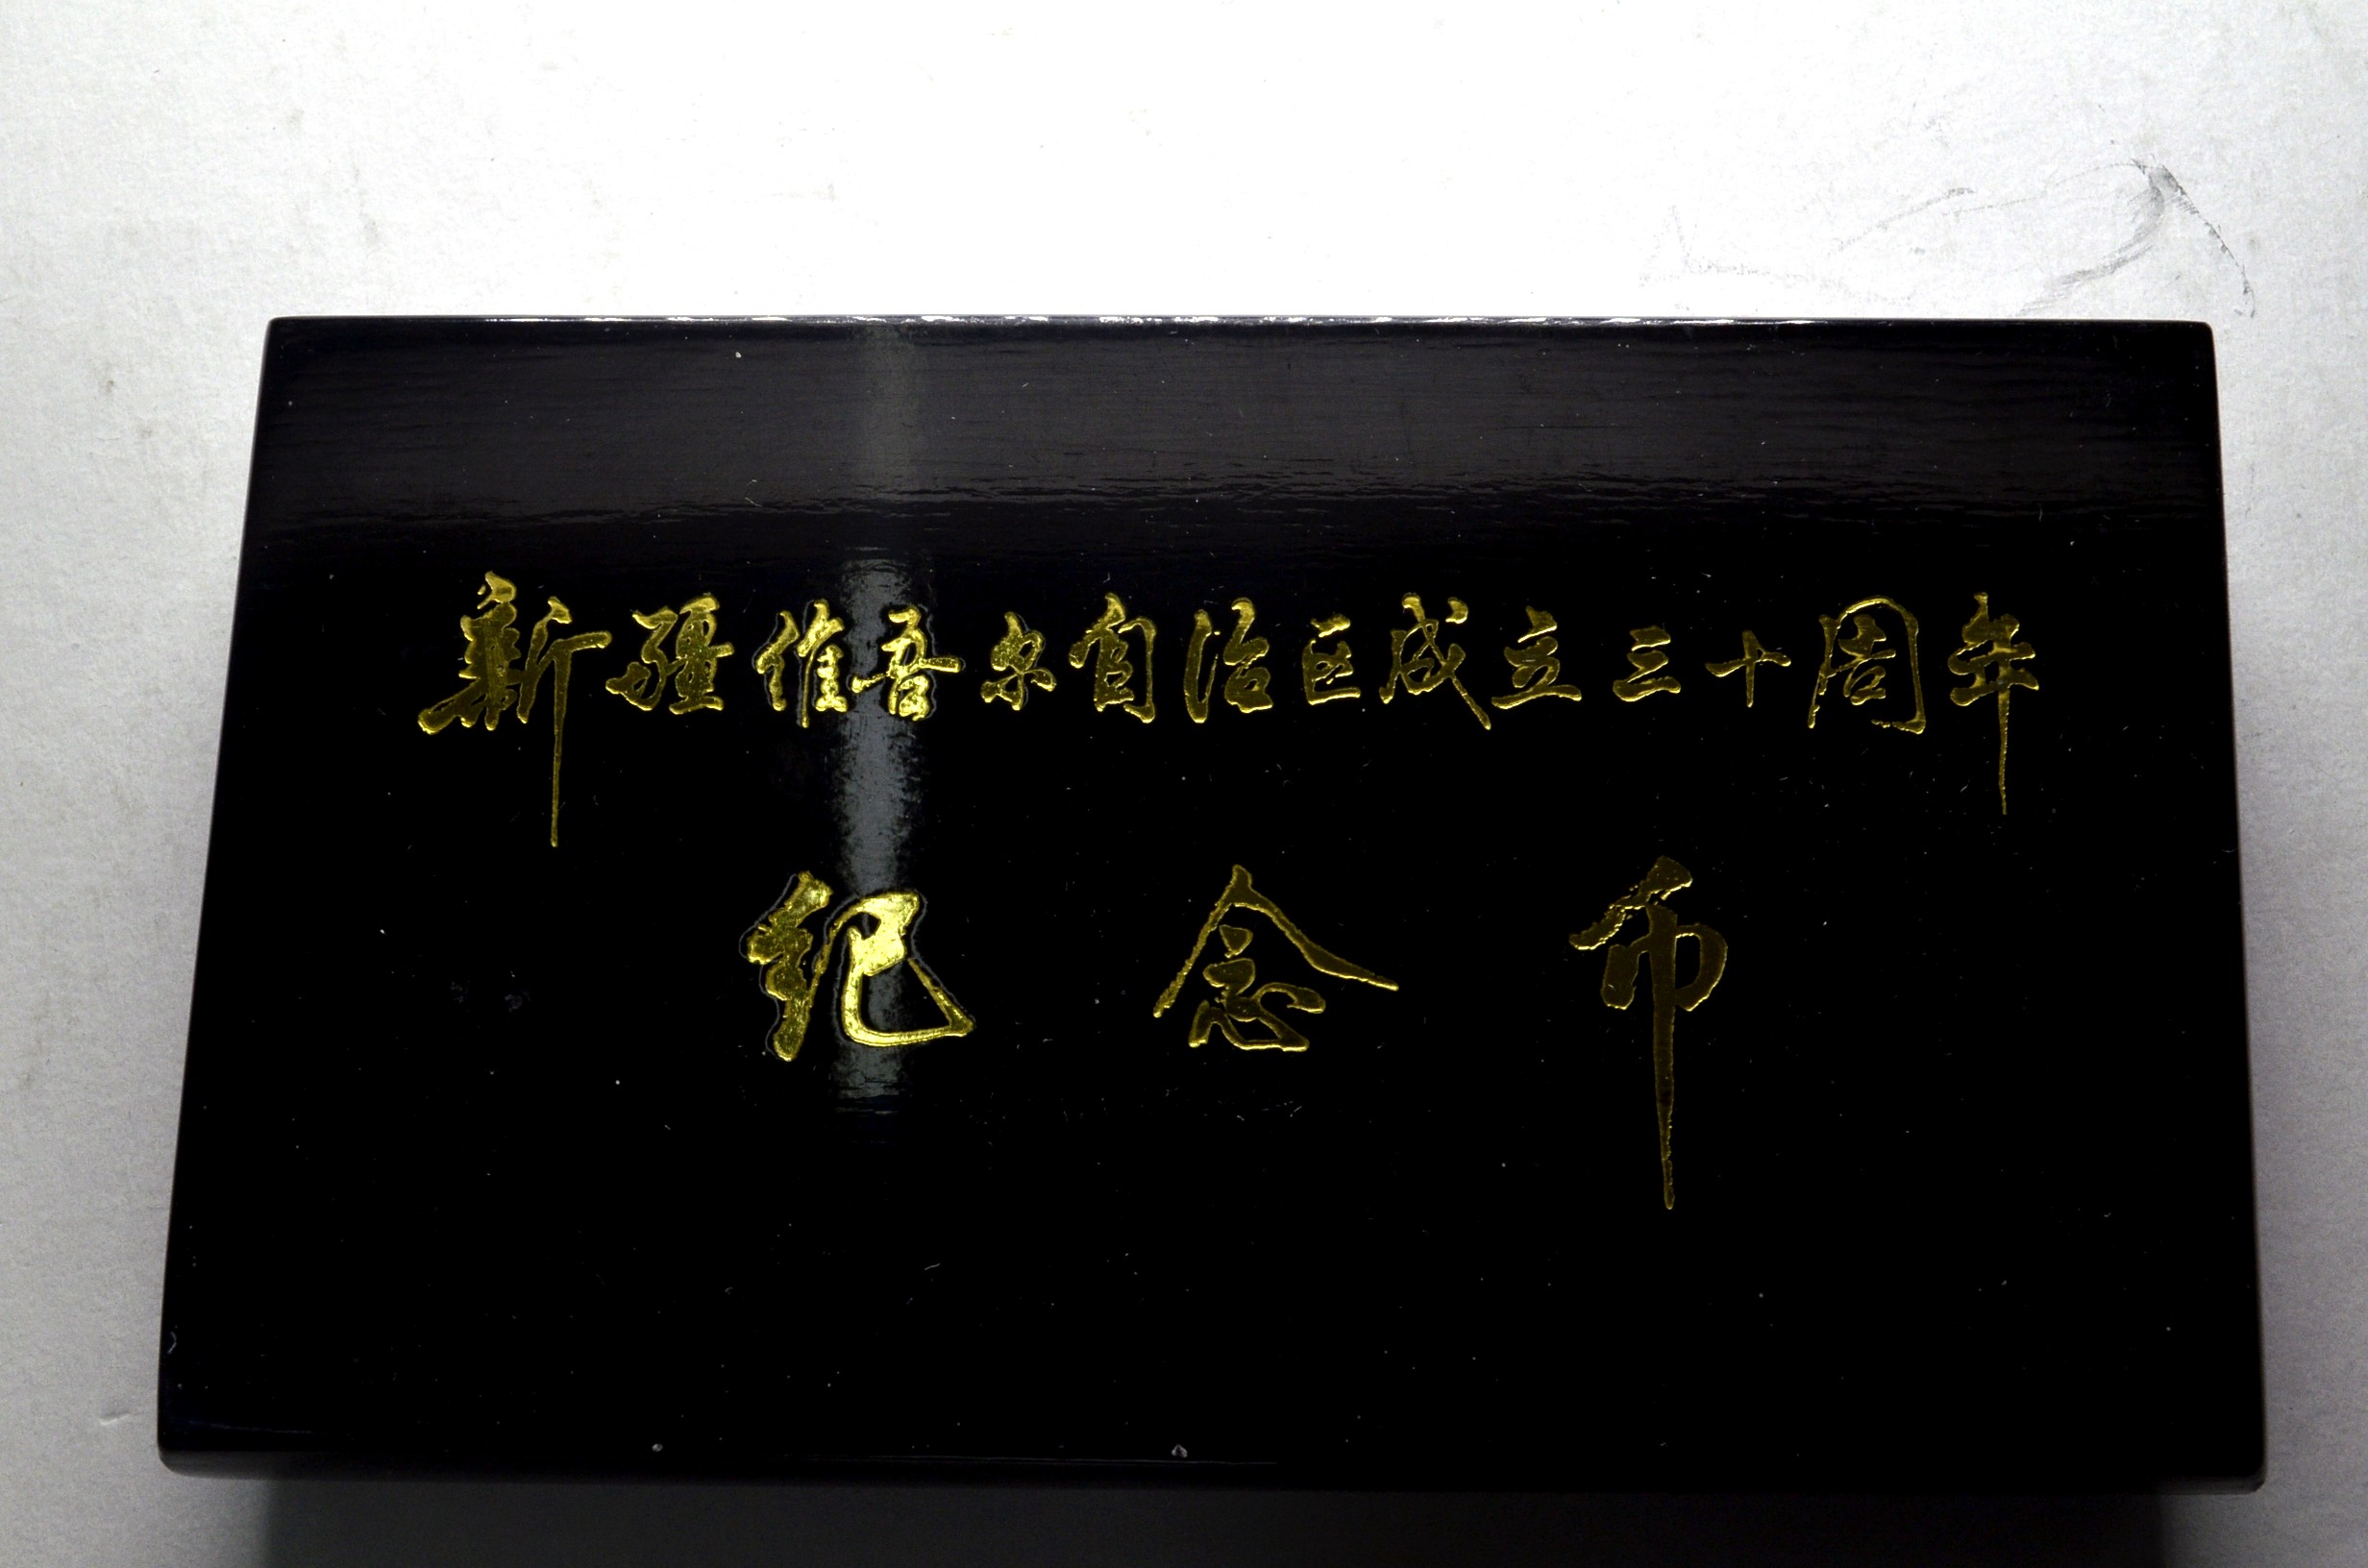 新疆维吾尔自治区成立三十周年
纪念币